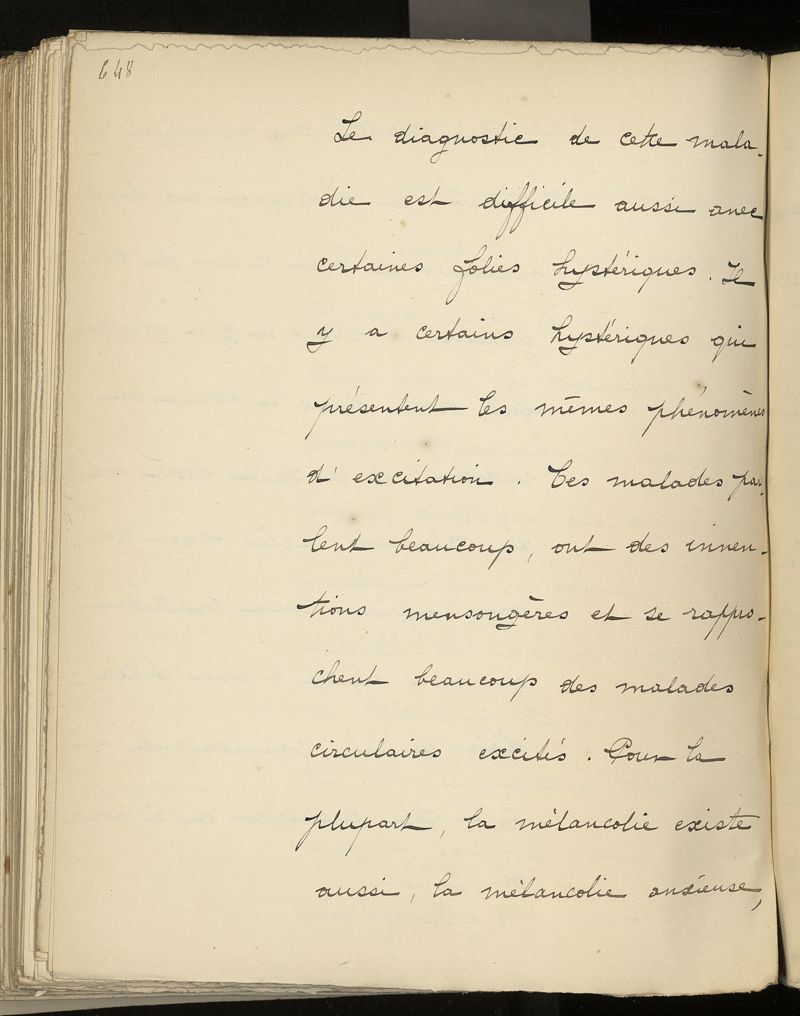 648
Le diagnostic de cette mala-
die est difficile aussi avec
certaines folies hystériques. Il
y a certains hystériques qui
présentent les mêmes phénomènes
d'excitation. Ces malades par-
lent beaucoup, ont des inven-
tions mensongères et se rappro-
chent beaucoup des malades
circulaires excités. Pour la
plupart, la mélancolie existe
aussi, la mélancolie anxieuse,